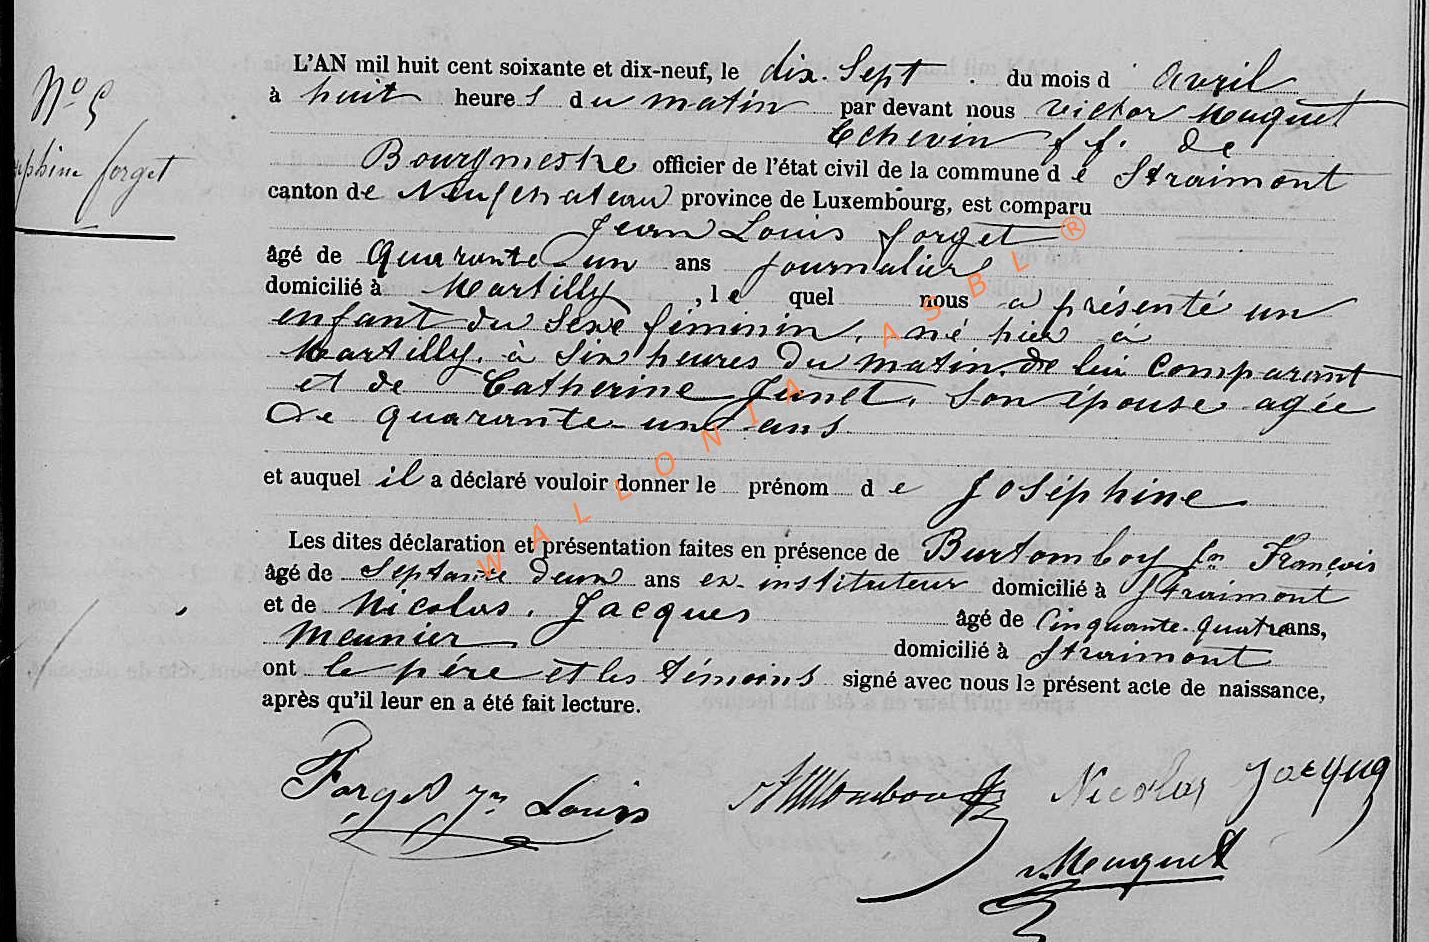 N° 5
Joséphine Forget
L'AN mil huit cent soixante et dix-neuf, le dix-sept du mois d avril
à huit heures du matin par devant nous Victor Mauquet
Echevin ff. de
Bourgmestre officier de l'état civil de la commune de Straimont
canton de Neufchateau province de Luxembourg, est comparu
Jean Louis Forget
âgé de Quarante-un ans journalier
domicilié à Martilly, le quel nous a présenté un
enfant du sexe féminin, né hier à
Martilly, à six heures du matin, de lui comparant
et de Catherine Junet, son épouse agée
de quarante-un ans
et auquel il a déclaré vouloir donner le prénom de Joséphine
Les dites déclaration et présentation faites en présence de Burtomboy Jn François
âgé de Septante deux ans ex-instituteur domicilié à Straimont
et de Nicolas Jacques âgé de Cinquante-quatre ans,
Meunier domicilié à Straimont
ont le père et les témoins signé avec nous le présent acte de naissance,
après qu'il leur en a été fait lecture.
Forget Jn Louis Nicolas Jacques
WALLONIA ASBL ®